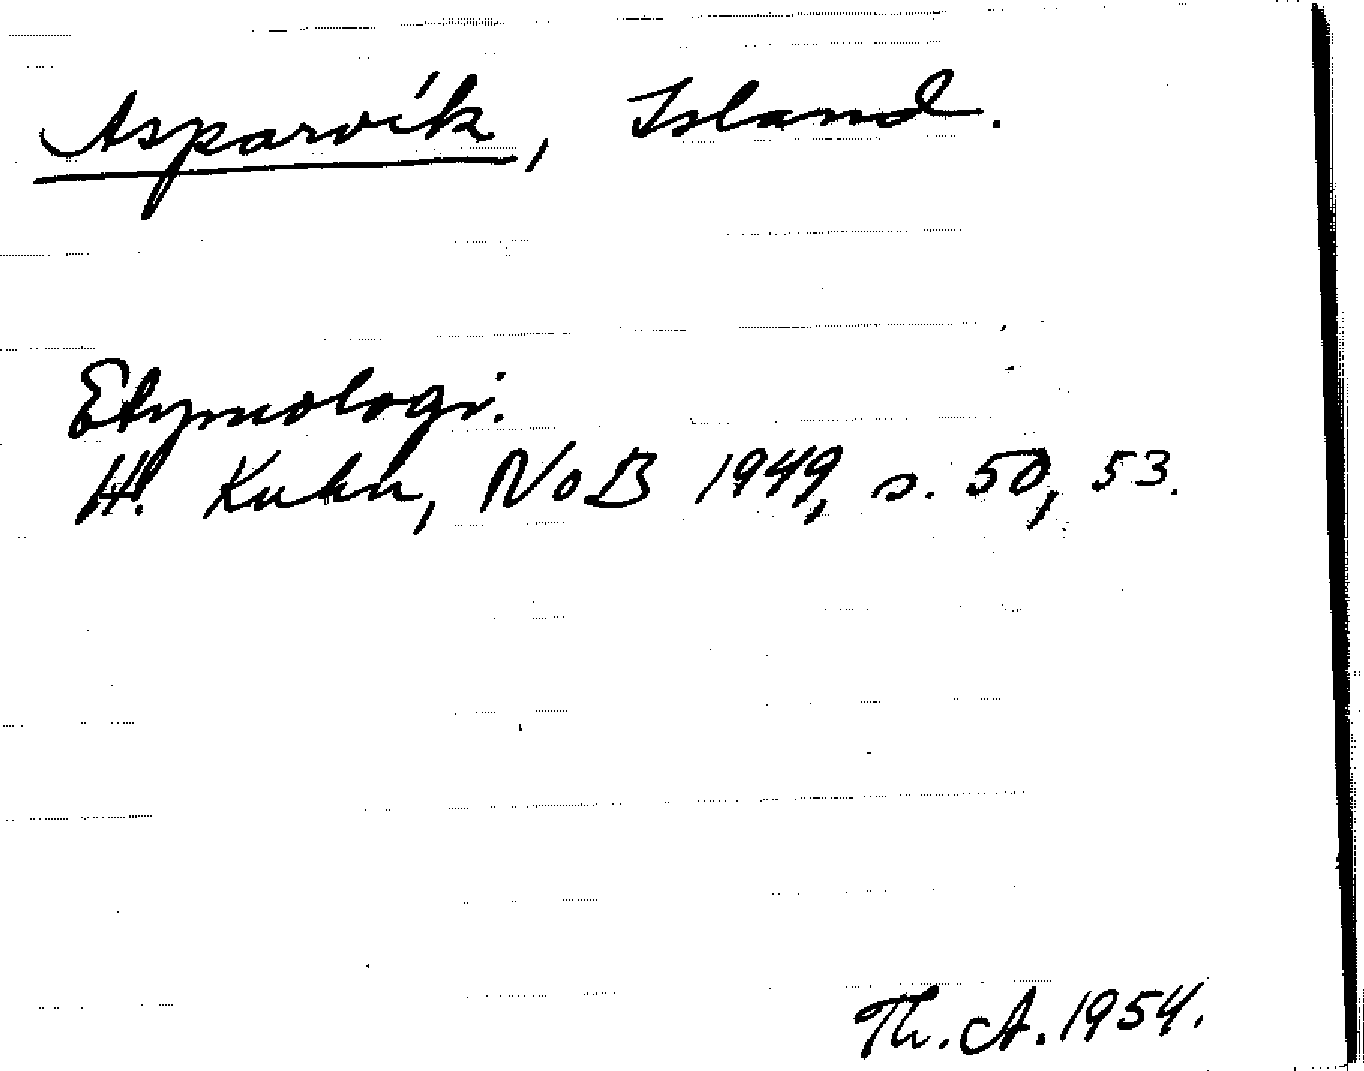 Asparvík, Island.
Etymologi.
H. Kuhn, NoB 1949, s. 50, 53.
Th. A. 1954.